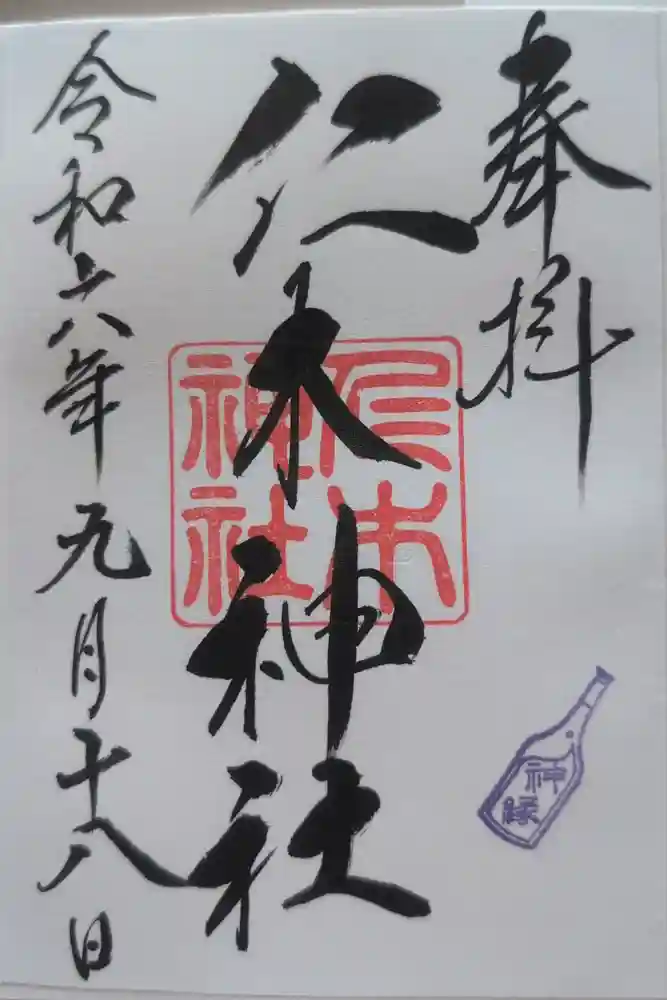 奉拝
仁木神社
仁木
神社
令和六年九月十八日
神
縁